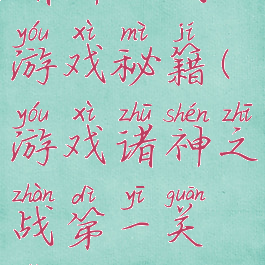 yóu xì mì jí
游戏秘籍(
yóu xì zhū shén zhī
游戏诸神之
zhàn dì yī guān
战第一关